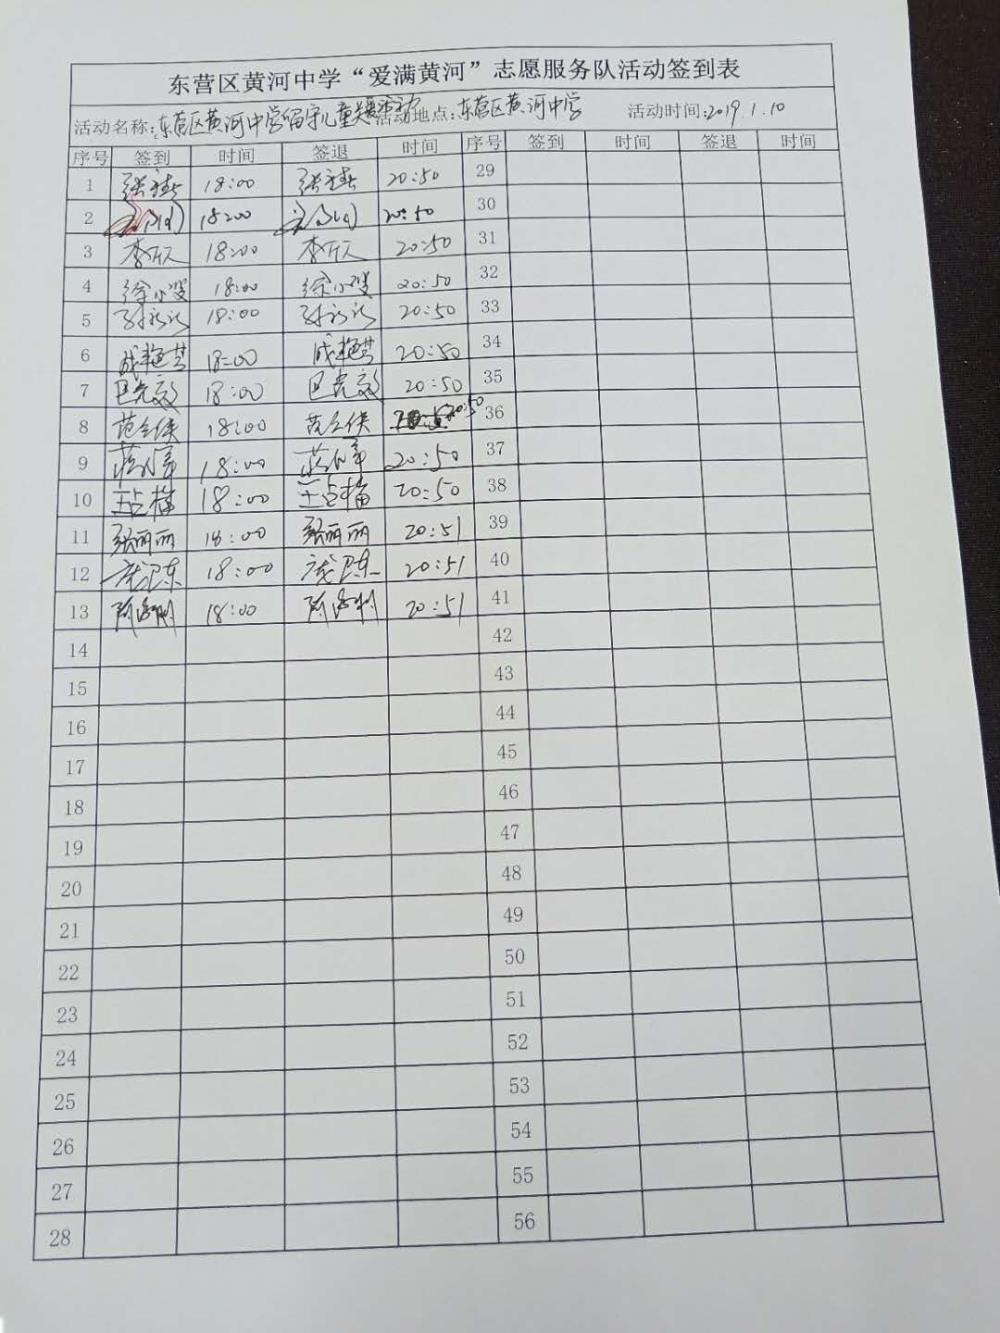 东营区黄河中学“爱满黄河”志愿服务队活动签到表
活动名称:东营区黄河中学留守儿童关爱活动 活动地点:东营区黄河中学 活动时间:2019.1.10
序号 签到 时间 签退 时间 序号 签到 时间 签退 时间
1 18:00 20:50 29
2 18:00 20:50 30
3 李欣 18:00 李欣 20:50 31
4 徐小雙 18:00 徐小雙 20:50 32
5 18:00 20:50 33
6 成艳芳 18:00 成艳芳 20:50 34
7 巴克敏 18:00 巴克敏 20:50 35
8 18:00 20:50 36
9 18:00 20:50 37
10 18:00 20:50 38
11 张丽丽 18:00 张丽丽 20:51 39
12 庞卫东 18:00 庞卫东 20:51 40
13 18:00 20:51 41
14 42
15 43
16 44
17 45
18 46
19 47
20 48
21 49
22 50
23 51
24 52
25 53
26 54
27 55
28 56